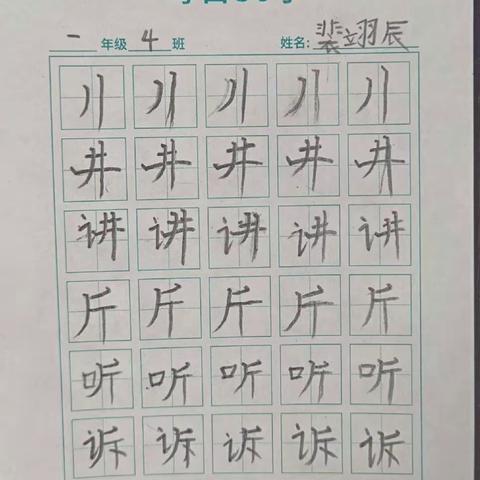 一 年级 4 班 姓名: 裴翊辰
儿 儿 儿 儿 儿
井 井 井 井 井
讲 讲 讲 讲 讲
斤 斤 斤 斤 斤
听 听 听 听 听
诉 诉 诉 诉 诉